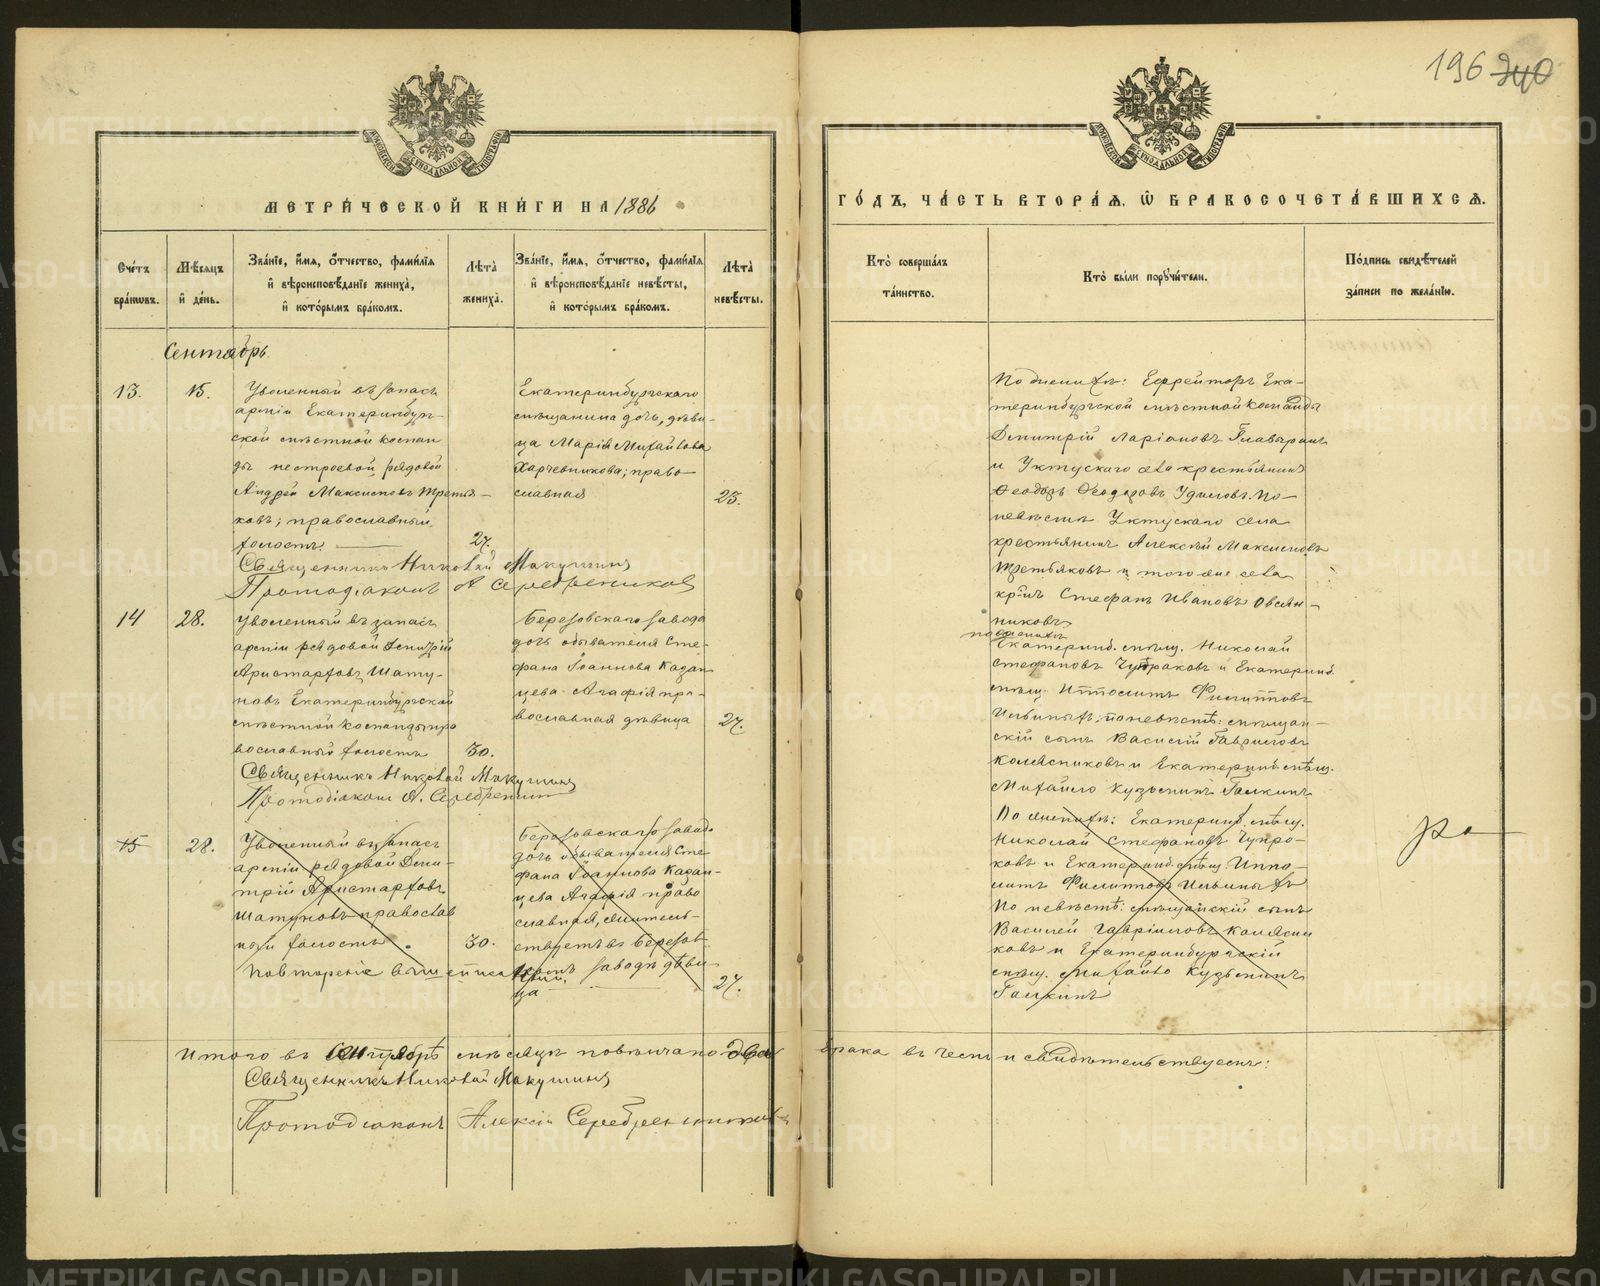 196 340
МЕТРИЧЕСКОЙ КНИГИ НА 1886
ГОДЪ, ЧАСТЬ ВТОРАЯ, Ѿ БРАКОСОЧЕТАВШИХСЯ.
Счетъ браковъ.
Мѣсяцъ и день.
Званіе, имя, отчество, фамилія
и вѣроисповѣданіе жениха,
и которымъ бракомъ.
Лѣта жениха.
Званіе, имя, отчество, фамилія
и вѣроисповѣданіе невѣсты,
и которымъ бракомъ.
Лѣта невѣсты.
Кто совершалъ
таинство.
Кто были поручители.
Подпись свидѣтелей
записи по желанію.
Сентябрь
13.
15.
Уволенный въ запасъ
арміи Екатеринбург-
ской мѣстной коман
ды нестроевой рядовой
Андрей Максимовъ Третья-
ковъ; православный
холостъ.
27.
Екатеринбургскаго
мѣщанина дочь, дѣви-
ца Марія Михайлова
Харчевникова; право-
славная
25.
По женихѣ: Ефрейторъ Ека-
теринбургской мѣстной команды
Димитрій Ларіоновъ
и Уктусскаго села крестьянинъ
Ѳеодоръ Ѳеодоровъ Удиловъ. По
невѣстѣ Уктускаго села
крестьянинъ Алексѣй Максимовъ
Третьяковъ и того же села
кр-нъ Стефанъ Ивановъ Овсян-
никовъ
Священникъ Николай Макушинъ
Протодіаконъ А Серебренниковъ
14
28.
Уволенный въ запасъ
арміи рядовой Димитрій
Аристарховъ Шату-
новъ Екатеринбургской
мѣстной команды пра
вославный холостъ
30.
Березовскаго завода
дочь обывателя Сте-
фана Іоаннова Казан
цева Агафія пра-
вославная дѣвица
27.
по женихѣ
Екатеринб. мѣщ. Николай
Стефановъ Чупраковъ и Екатеринб.
мѣщ. Ипполитъ Филипповъ
Ильиныхъ; по невѣстѣ: мѣщан-
скій сынъ Василій Гавриловъ
Колясниковъ и Екатеринб. мѣщ.
Михайло Кузьминъ Галкинъ
Священникъ Николай Макушинъ
Протодіаконъ А. Серебренник
15
28.
Уволенный въ запасъ
арміи рядовой Дими-
трій Аристарховъ
Шатуновъ православ
ный холостъ
30.
Березовскаго завода
дочь обывателя Сте
фана Іоаннова Казан-
цева Агафія право
славная, жительствуетъ въ Березов
скомъ заводѣ дѣви-
ца
27.
По женихѣ: Екатеринб. мѣщ.
Николай Стефановъ Чупра-
ковъ и Екатеринб. мѣщ. Иппо-
литъ Филипповъ Ильиныхъ
По невѣстѣ: мѣщанскій сынъ
Василій Гавріиловъ Колясни
ковъ и Екатеринбургскій
мѣщ. Михайло Кузьминъ
Галкинъ
повтореніе вышеписанный.
Итого въ Сентябрѣ мѣсяцѣ повѣнчано два брака въ чемъ и свидѣтельствуемъ:
Священникъ Николай Макушинъ
Протодіаконъ Алексій Серебренниковъ
METRIKI.GASO-URAL.RU